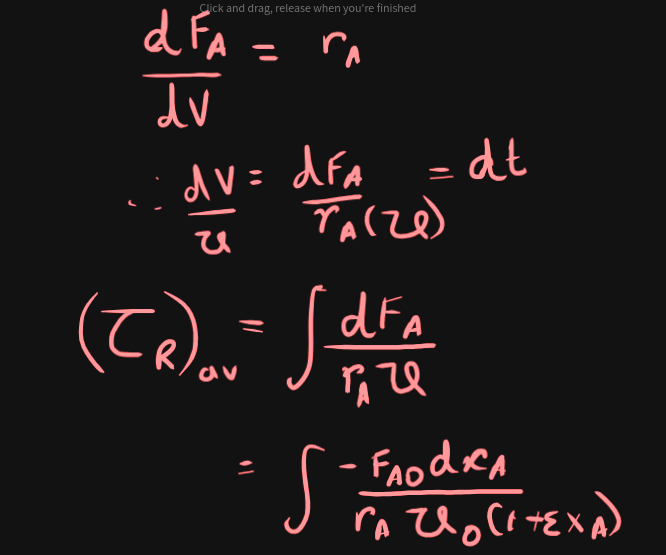 Click and drag, release when you're finished
dF_A/dV = r_A
∴ dV/v = dF_A/(r_A(v)) = dt
(τ_R)_av = ∫ dF_A/(r_A v)
= ∫ -F_A0 dx_A/(r_A v_0(1+εx_A))